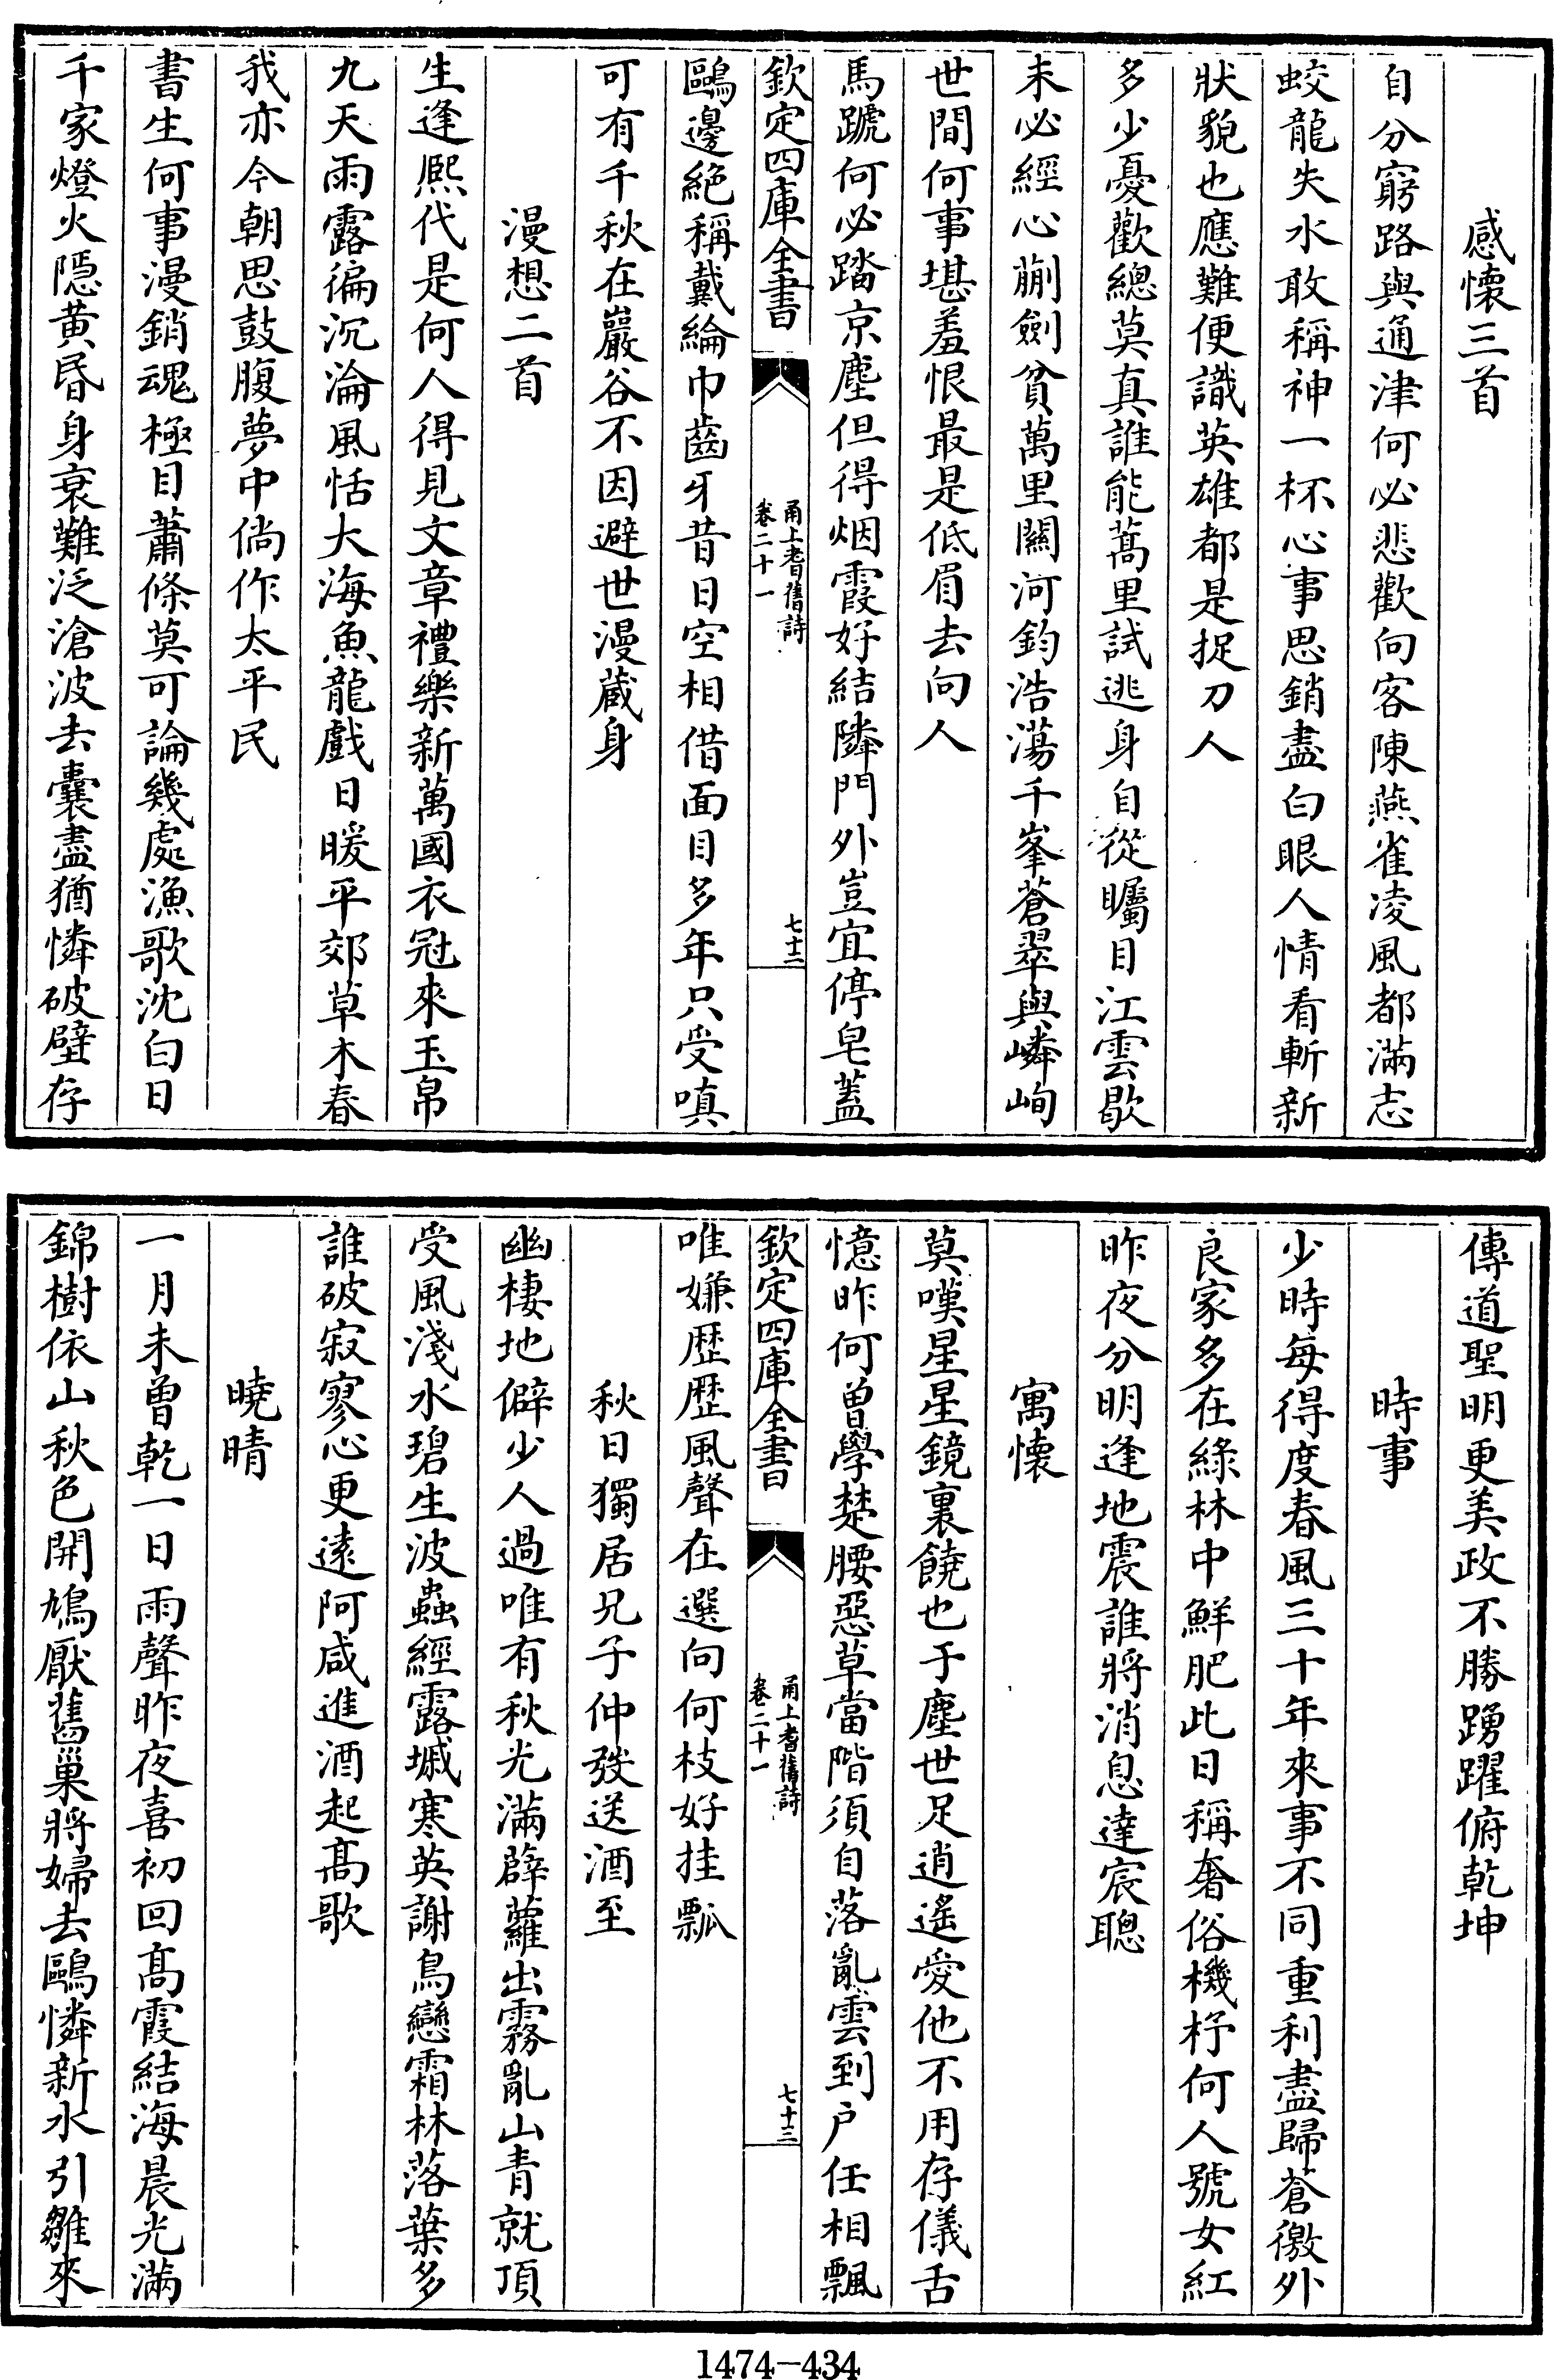 感懐三首
自分窮路與通津何必悲歡向客陳燕雀凌風都滿志
蛟龍失水敢稱神一杯心事思銷盡白眼人情看斬新
狀貌也應難便識英雄都是捉刀人
多少憂歡總莫真誰能蒿里試逃身自從矚目江雲歇
未必經心蒯劍貧萬里闗河鈞浩蕩千峯蒼翠與嶙峋
世間何事堪羞恨最是低眉去向人
馬蹏何必踏京塵但得烟霞好結隣門外豈宜停皂蓋
欽定四庫全書
甬上耆舊詩
卷二十一
七十二
鷗邊絶稱戴綸巾齒牙昔日空相借面目多年只受嗔
可有千秋在巖谷不因避世漫蔵身
漫想二首
生逢熈代是何人得見文章禮樂新萬國衣冠來玉帛
九天雨露徧沉淪風恬大海魚龍戲日暖平郊草木春
我亦今朝思鼓腹夢中倘作太平民
書生何事漫銷魂極目蕭條莫可論幾處漁歌沈白日
千家燈火隠黄昏身衰難泛滄波去囊盡猶憐破壁存
傳道聖明更美政不勝踴躍俯乾坤
時事
少時每得度春風三十年來事不同重利盡歸蒼徼外
良家多在綠林中鮮肥此日稱奢俗機杼何人號女紅
昨夜分明逢地震誰將消息達宸聰
寓懐
莫嘆星星鏡裏饒也于塵世足逍遙愛他不用存儀舌
憶昨何曽學楚腰惡草當階須自落亂雲到户任相飄
欽定四庫全書
甬上耆舊詩
卷二十一
七十三
唯嫌歴歴風聲在選向何枝好挂瓢
秋日獨居兄子仲發送酒至
幽棲地僻少人過唯有秋光滿薜蘿出霧亂山青就頂
受風淺水碧生波蟲經露墄寒英謝鳥戀霜林落葉多
誰破寂寥心更遠阿咸進酒起髙歌
曉晴
一月未曽乾一日雨聲昨夜喜初回髙霞結海晨光滿
錦樹依山秋色開鳩厭舊巢將婦去鷗憐新水引雛來
1474-434